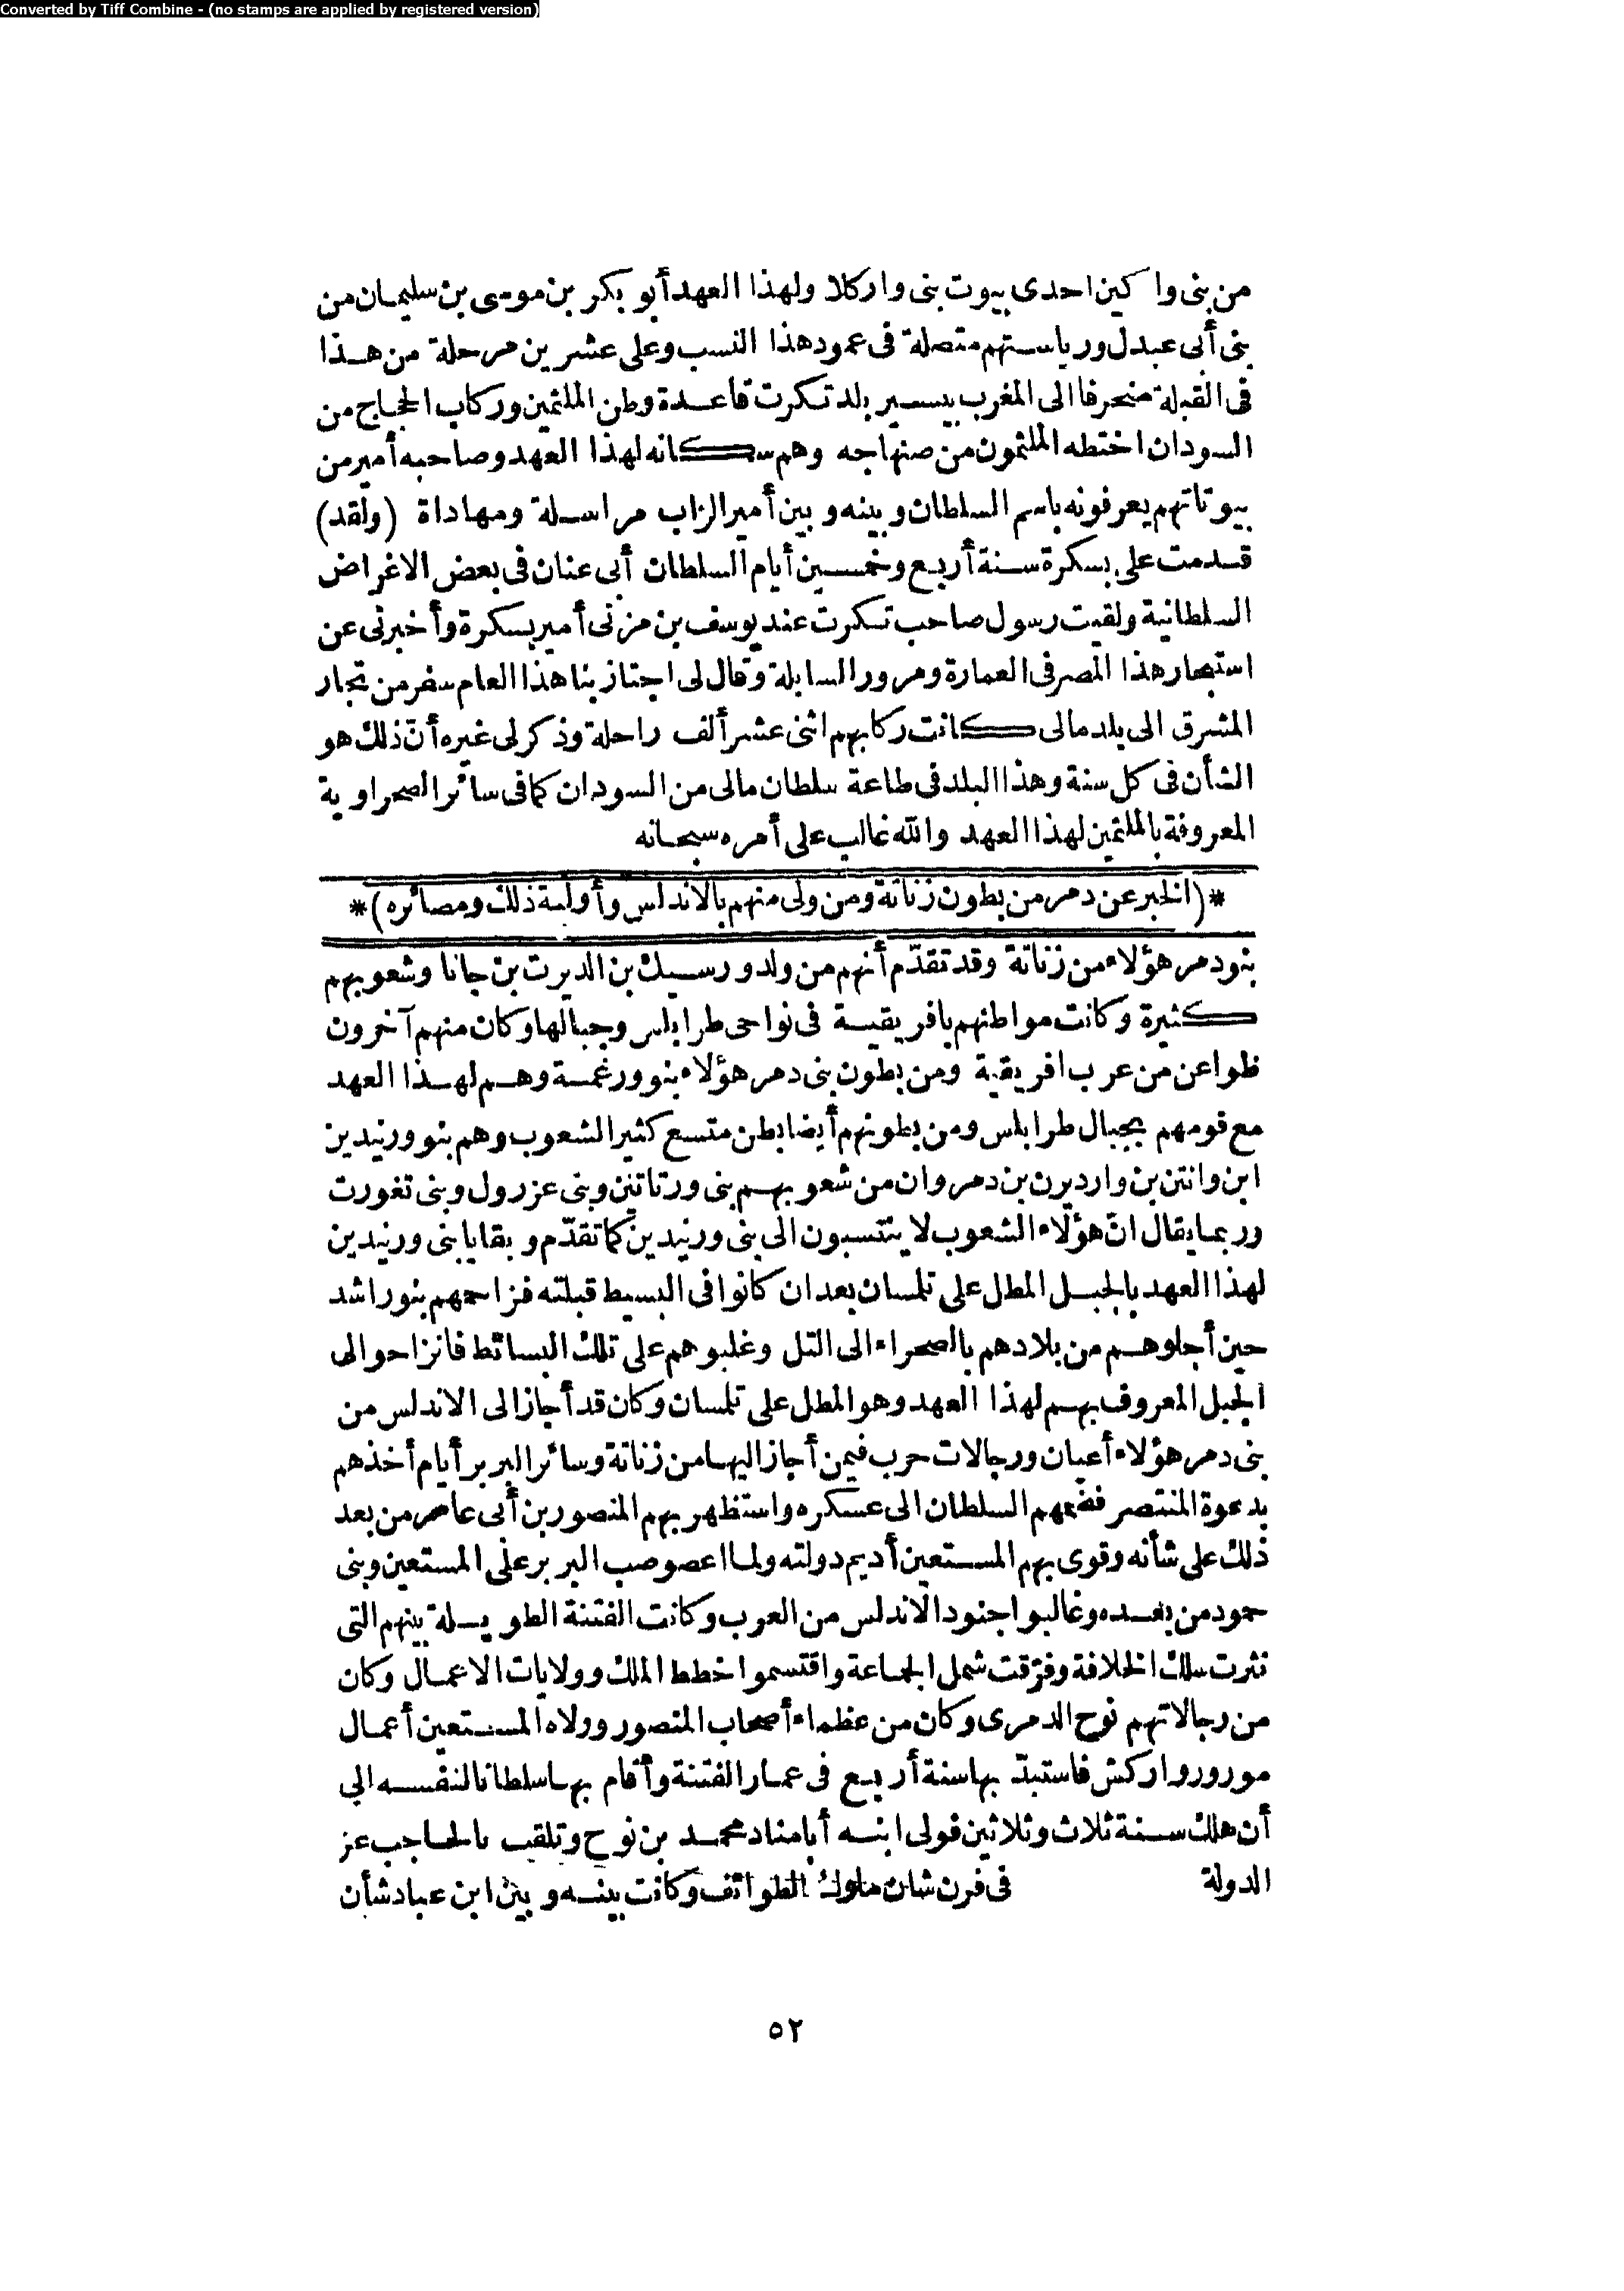 Converted by Tiff Combine - (no stamps are applied by registered version)
من بنى واكين احدى بيوت بنى واركلا ولهذا العهد أبو بكر بن موسى بن سليمان من
بنى أبى عبدل ورياستهم متصلة فى عمود هذا النسب وعلى عشرين مرحلة من هذا
فى القبلة منحرفا الى المغرب بيسير بلد تكرت قاعدة وطن الملثمين وركاب الحجاج من
السودان اختطه الملثمون من صنهاجه وهم سكانه لهذا العهد وصاحبه أمير من
بيوتاتهم يعرفونه باسم السلطان وبينه وبين أمير الزاب مراسلة ومهاداة (ولقد)
قدمت على بسكرة سنة أربع وخمسين أيام السلطان أبى عنان فى بعض الاغراض
السلطانية ولقيت رسول صاحب تكرت عند يوسف بن مزنى أمير بسكرة وأخبرنى عن
استبحار هذا المصر فى العمارة ومرور السابلة وقال لى اجتاز بنا هذا العام سفر من تجار
المشرق الى بلد مالى كانت ركابهم اثنى عشر ألف راحلة وذكر لى غيره أنّ ذلك هو
الشأن فى كل سنة وهذا البلد فى طاعة سلطان مالى من السودان كما فى سائر الصحراوية
المعروفة بالملثمين لهذا العهد والله غالب على أمره سبحانه
*(الخبر عن دمر من بطون زناتة ومن ولى منهم بالاندلس وأولية ذلك ومصائره)*
بنو دمر هؤلاء من زناتة وقد تقدّم أنهم من ولد ورسيك بن الديرت بن جانا وشعوبهم
كثيرة وكانت مواطنهم بافريقية فى نواحى طرابلس وجبالها وكان منهم آخرون
ظواعن من عرب افريقية ومن بطون بنى دمر هؤلاء بنو ورغمة وهم لهذا العهد
مع قومهم بجبال طرابلس ومن بطونهم أيضا بطن متسع كثير الشعوب وهم بنو ورنيدين
ابن وانتن بن وارديرن بن دمر وان من شعوبهم بنى ورتاتين وبنى عزرول وبنى تغورت
وربما يقال انّ هؤلاء الشعوب لا ينتسبون الى بنى ورنيدين كما تقدّم وبقايا بنى ورنيدين
لهذا العهد بالجبل المطل على تلمسان بعد ان كانوا فى البسيط قبلته فزاحمهم بنو راشد
حين أجلوهم من بلادهم بالصحراء الى التل وغلبوهم على تلك البسائط فانزاحوا الى
الجبل المعروف بهم لهذا العهد وهو المطل على تلمسان وكان قد أجاز الى الاندلس من
بنى دمر هؤلاء أعيان ورجالات حرب فيمن أجاز اليها من زناتة وسائر البربر أيام أخذهم
بدعوة المنتصر فضمهم السلطان الى عسكره واستظهر بهم المنصور بن أبى عامر من بعد
ذلك على شأنه وقوى بهم المستعين أديم دولته ولما اعصوصب البربر على المستعين وبنى
حمود من بعده وغالبوا جنود الاندلس من العرب وكانت الفتنة الطويلة بينهم التى
نثرت سلك الخلافة وفرّقت شمل الجماعة واقتسموا خطط الملك وولايات الاعمال وكان
من رجالاتهم نوح الدمرى وكان من عظماء أصحاب المنصور وولاه المستعين أعمال
مورور واركش فاستبدّ بها سنة أربع فى غمار الفتنة وأقام بها سلطانا لنفسه الى
أن هلك سنة ثلاث وثلاثين فولى ابنه أبا مناد محمد بن نوح وتلقب بالحاجب عز
الدولة فى قرن شان ملوك الطوائف وكانت بينه وبين ابن عباد شأن
٥٢